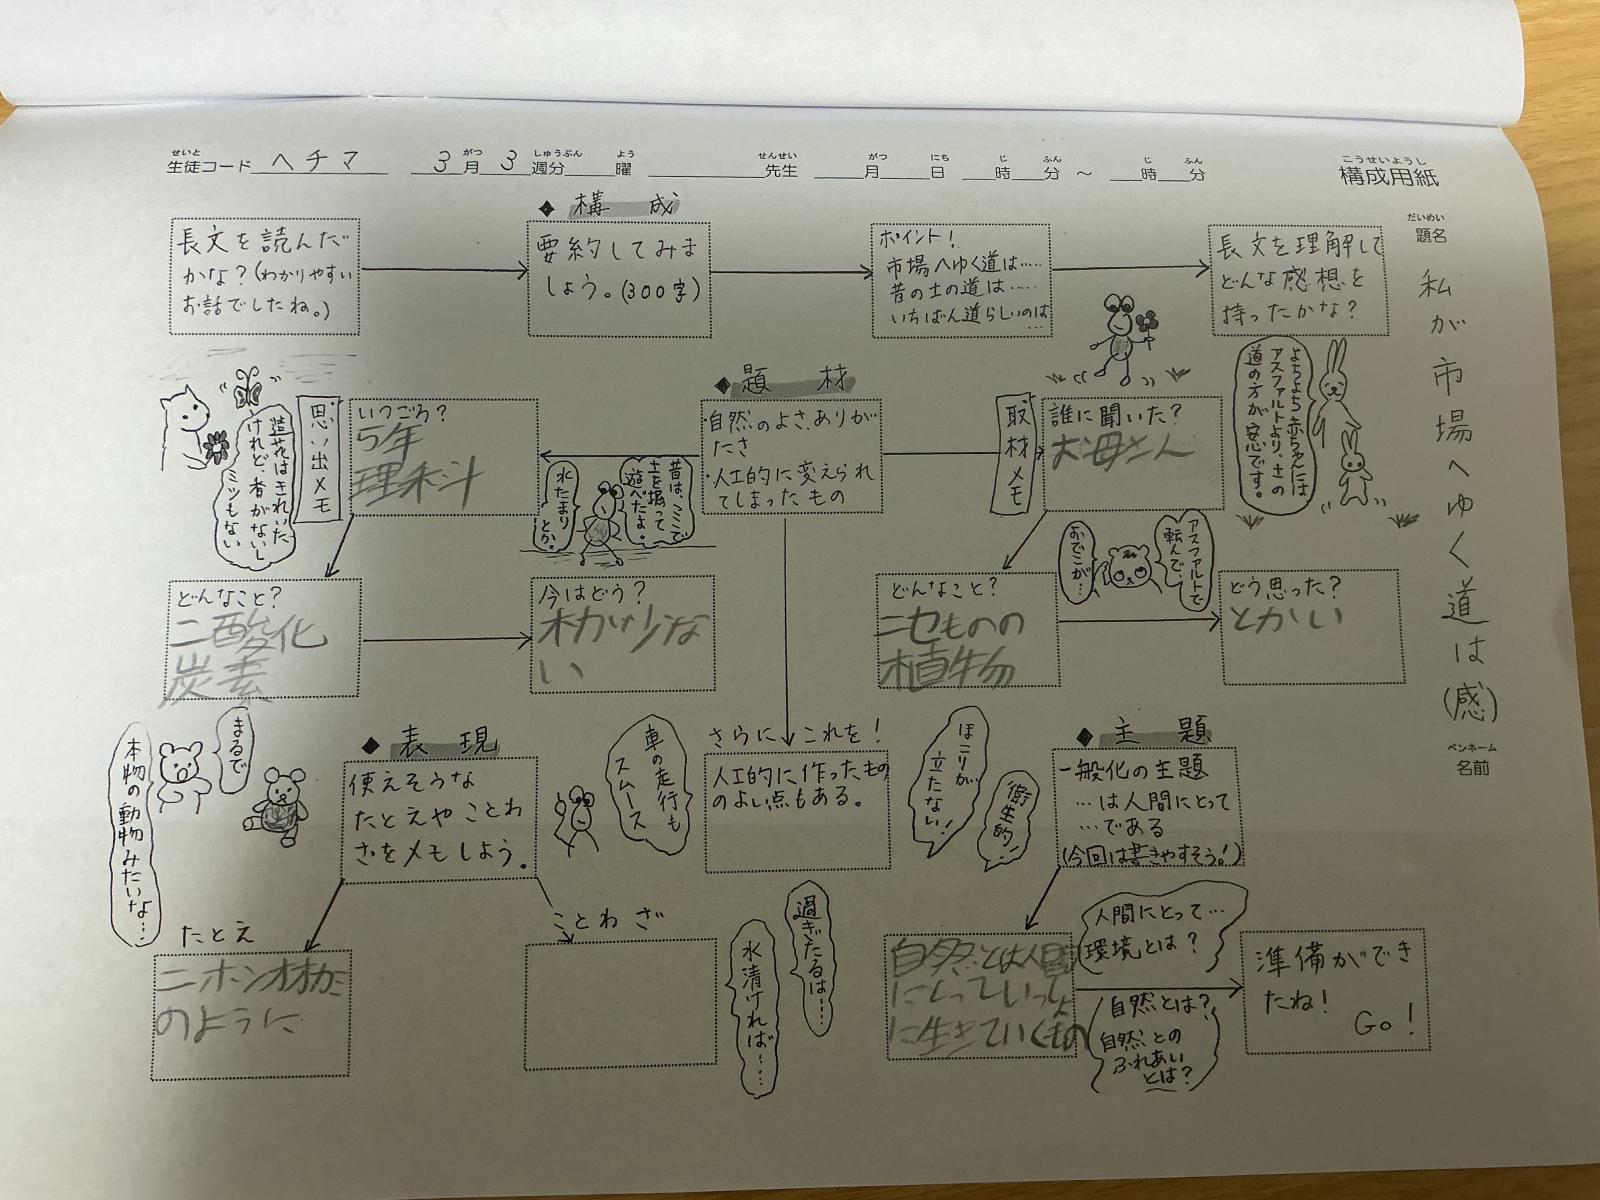 せいと がつ しゅうぶん よう せんせい がつ にち じ ふん じ ふん こうせいようし
生徒コード ヘチマ 3月3週分 曜 先生 月 日 時 分 ～ 時 分 構成用紙
だいめい
題名
私が市場へゆく道は(感)
ペンネーム
名前
長文を読んだ
かな?(わかりやすい
お話でしたね。)
◆構成
要約してみま
しょう。(300字)
ポイント!
市場へゆく道は……
昔の土の道は……
いちばん道らしいのは
…
長文を理解して
どんな感想を
持ったかな?
よちよち赤ちゃんには
アスファルトより、土の
道の方が安心です。
◆題材
自然のよさ、ありが
たさ
・人工的に変えられ
てしまったもの
取材メモ
誰に聞いた?
お母さん
どんなこと?
ニセものの
植物
アスファルトで
転んで、
おでこが…
どう思った?
とかい
思い出メモ
いつごろ?
5年
理科
造花はきれいだ
けれど、香がないし
ミツもない
昔は、ここで
土を掘って
遊べたよ。
水たまり
とか。
どんなこと?
二酸化
炭素
今はどう?
木が少な
い
さらにこれを!
人工的に作ったもの
のよい点もある。
車の走行も
スムース
ほこりが
立たない!
衛生的!
◆表現
使えそうな
たとえやことわ
ざをメモしよう。
まるで
本物の動物みたいな…
たとえ
ニホンオオカミ
のように
ことわざ
過ぎたるは……
水清ければ……
◆主題
一般化の主題
…は人間にとって
…である
(今回は書きやすそう!)
自然とは人間
にとっていっしょ
に生きていくもの
人間にとって…
環境とは?
自然とは?
自然との
ふれあい
とは?
準備ができ
たね!
Go!